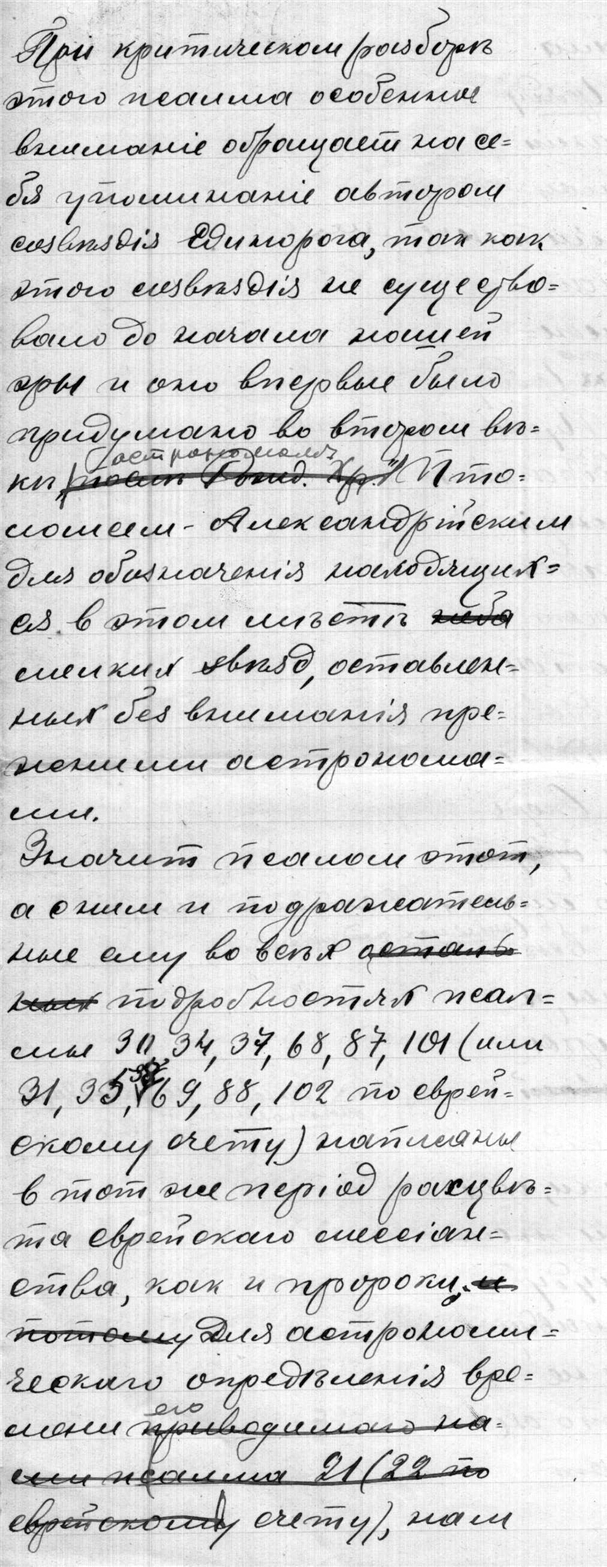 При критическом разборѣ
этого псалма особенное
вниманіе обращает на се=
бя упоминаніе автором
созвѣздія Единорога, так как
этого созвѣздія не существо=
вало до начала нашей
эры и оно впервые было
придумано во втором вѣ=
астрономомъ
кѣ, послѣ Рожд. Хр. Пто=
ломеем-Александрійским
для обозначенія находящих=
ся в этом мѣстѣ неба
мелких звѣзд, оставлен=
ных без вниманія пре=
жними астронома=
ми.
Значит псалом этот,
а с ним и подражатель=
ные ему во всѣх осталь
ных подробностях псал=
мы 30, 34, 37, 68, 87, 101 (или
31, 35, 38, 69, 88, 102 по еврей=
скому счету) написаны
в тот же період расцвѣ=
та еврейскаго мессіан=
ства, как и пророки, и
потому Для астрономи=
ческаго опредѣленія вре=
его
мени приводимаго на=
ми псалма 21 (22 по
еврейскому счету), нам